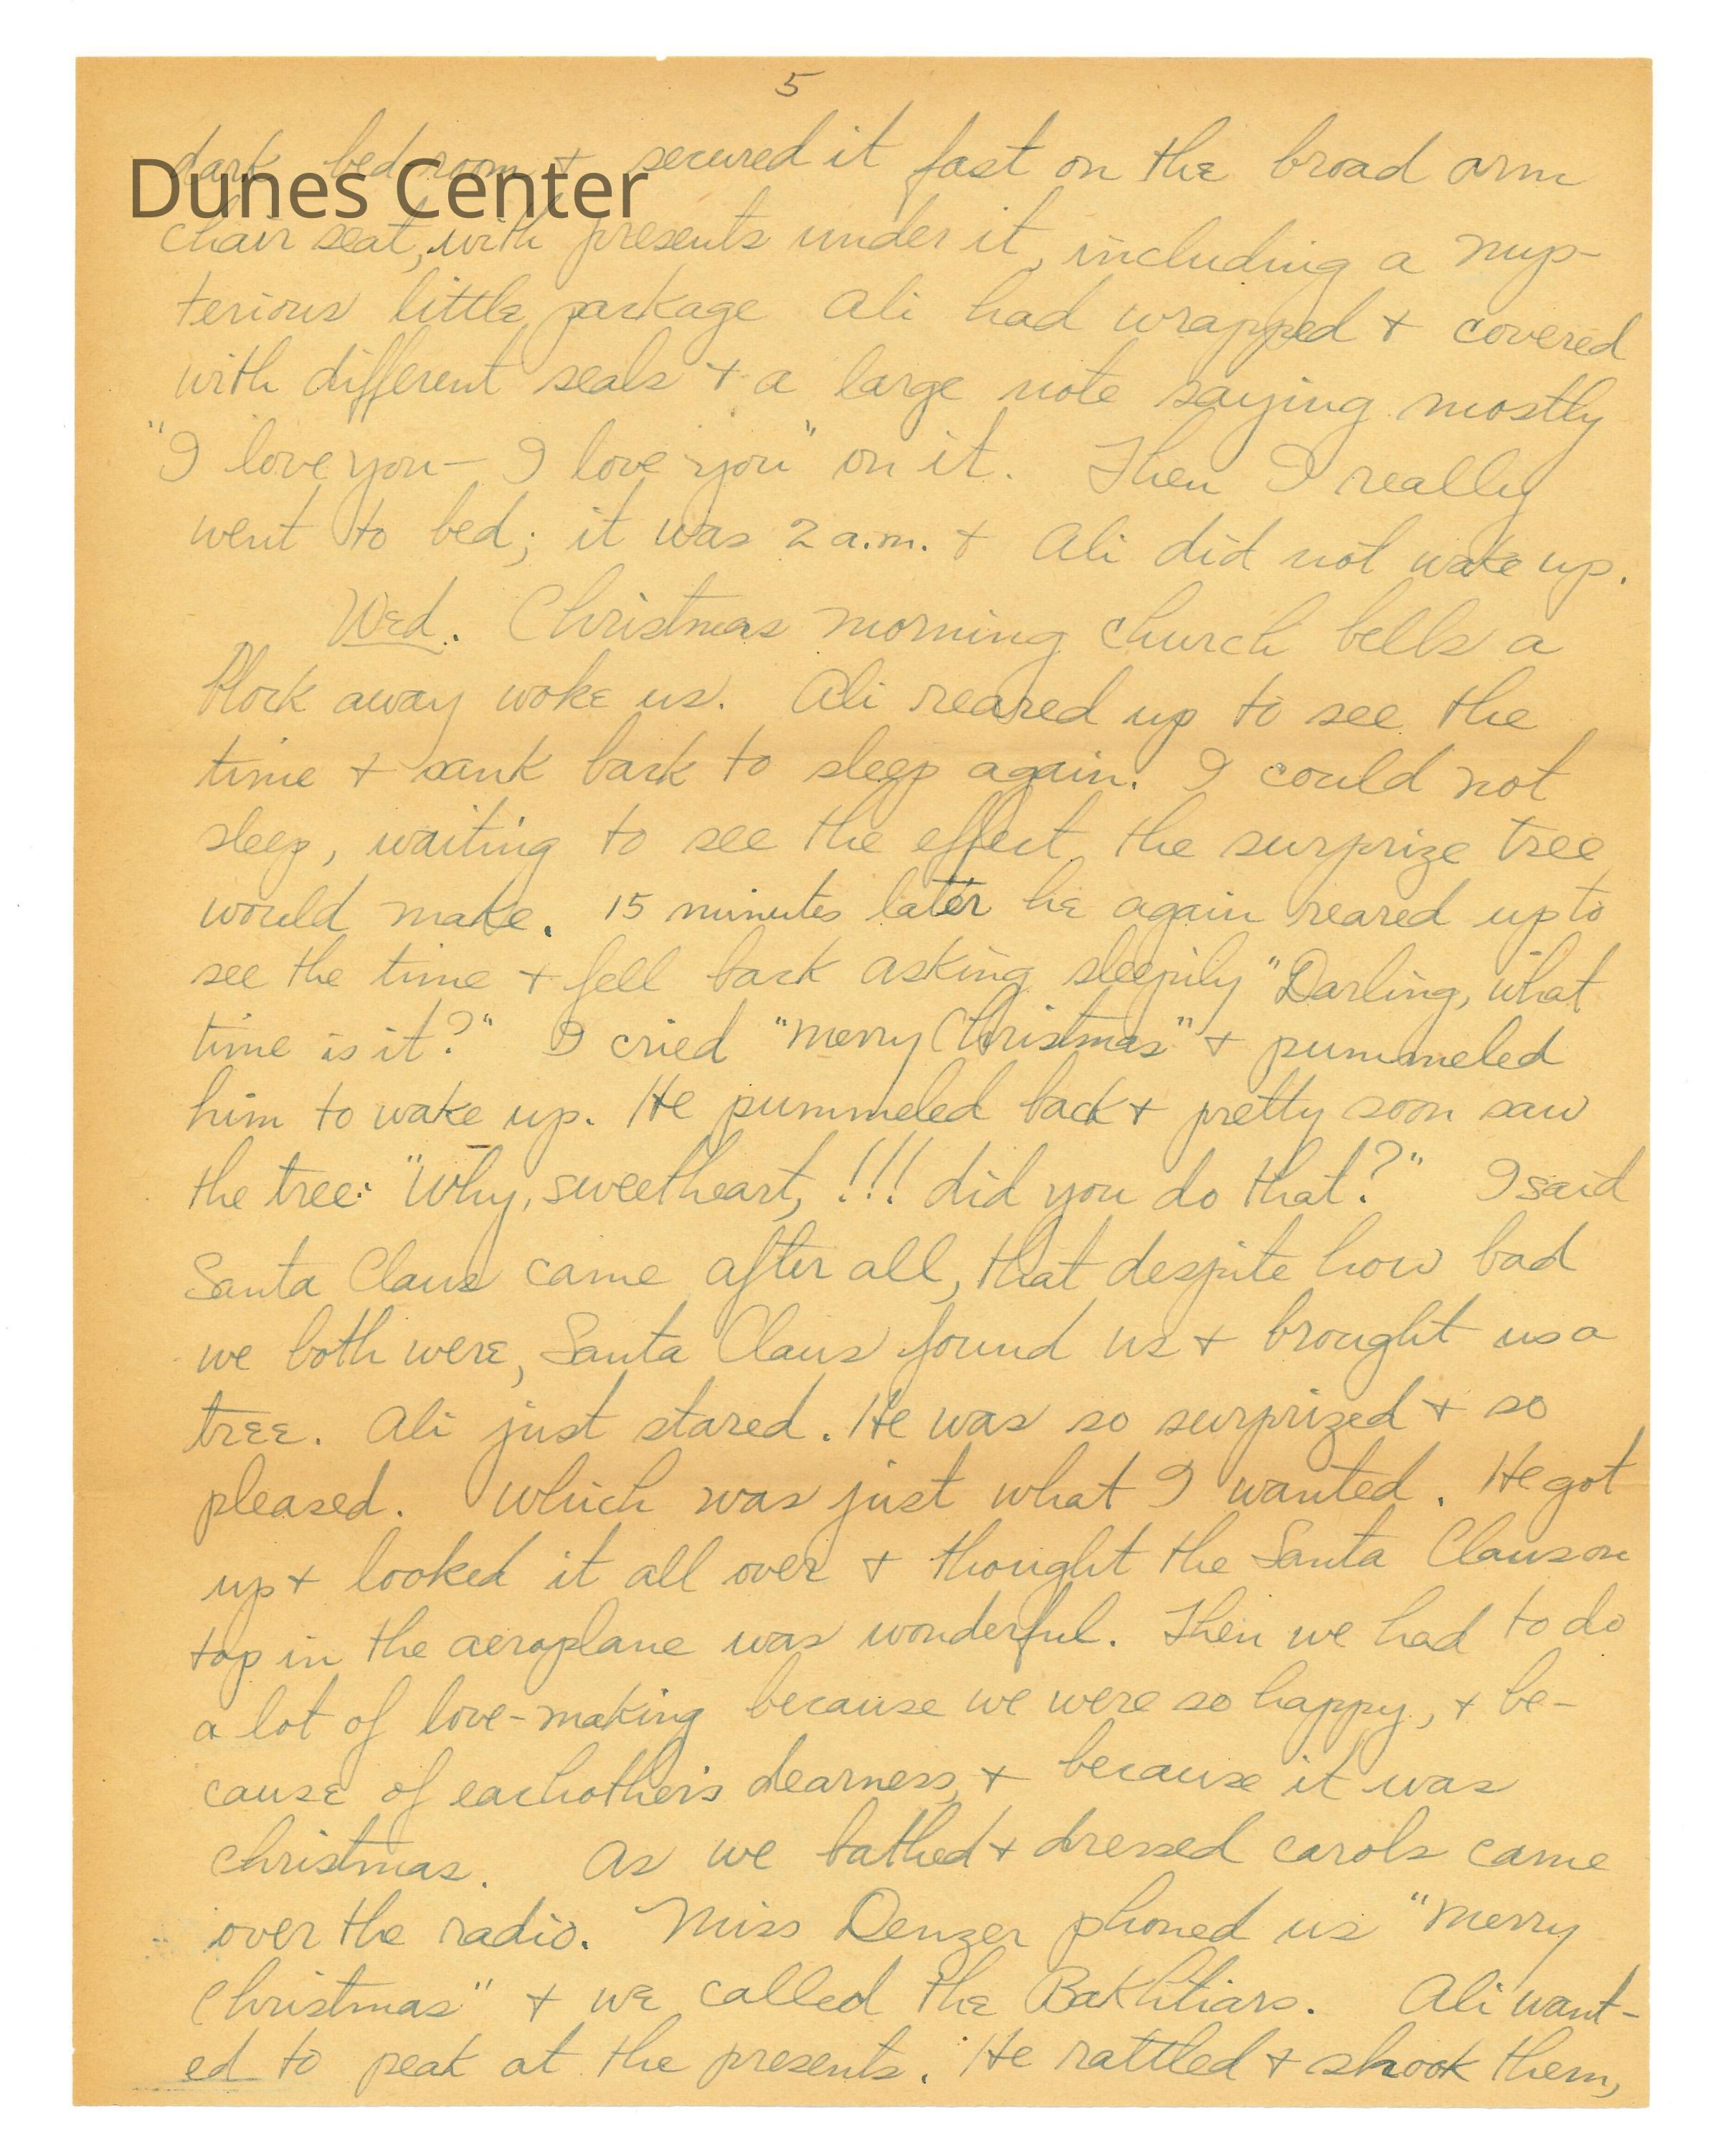 5
Dunes Center
dark bedroom + secured it fast on the broad arm
chair seat, with presents under it, including a mys-
terious little package Ali had wrapped + covered
with different seals + a large note saying mostly
"I love you – I love you" on it. Then I really
went to bed; it was 2 a.m. + Ali did not wake up.
Wed. Christmas morning church bells a
block away woke us. Ali reared up to see the
time + sank back to sleep again. I could not
sleep, waiting to see the effect the surprize tree
would make. 15 minutes later he again reared up to
see the time + fell back asking sleepily "Darling, what
time is it?" I cried "Merry Christmas" + pummeled
him to wake up. He pummeled back + pretty soon saw
the tree: "Why, sweetheart, !!! did you do that?" I said
Santa Claus came after all, that despite how bad
we both were, Santa Claus found us + brought us a
tree. Ali just stared. He was so surprized + so
pleased. Which was just what I wanted. He got
up + looked it all over + thought the Santa Claus on
top in the aeroplane was wonderful. Then we had to do
a lot of love-making because we were so happy, + be-
cause of eachother's dearness, + because it was
Christmas. As we bathed + dressed carols came
over the radio. Miss Denzer phoned us "Merry
Christmas" + we called the Bakhtiars. Ali want-
ed to peak at the presents. He rattled + shook them,